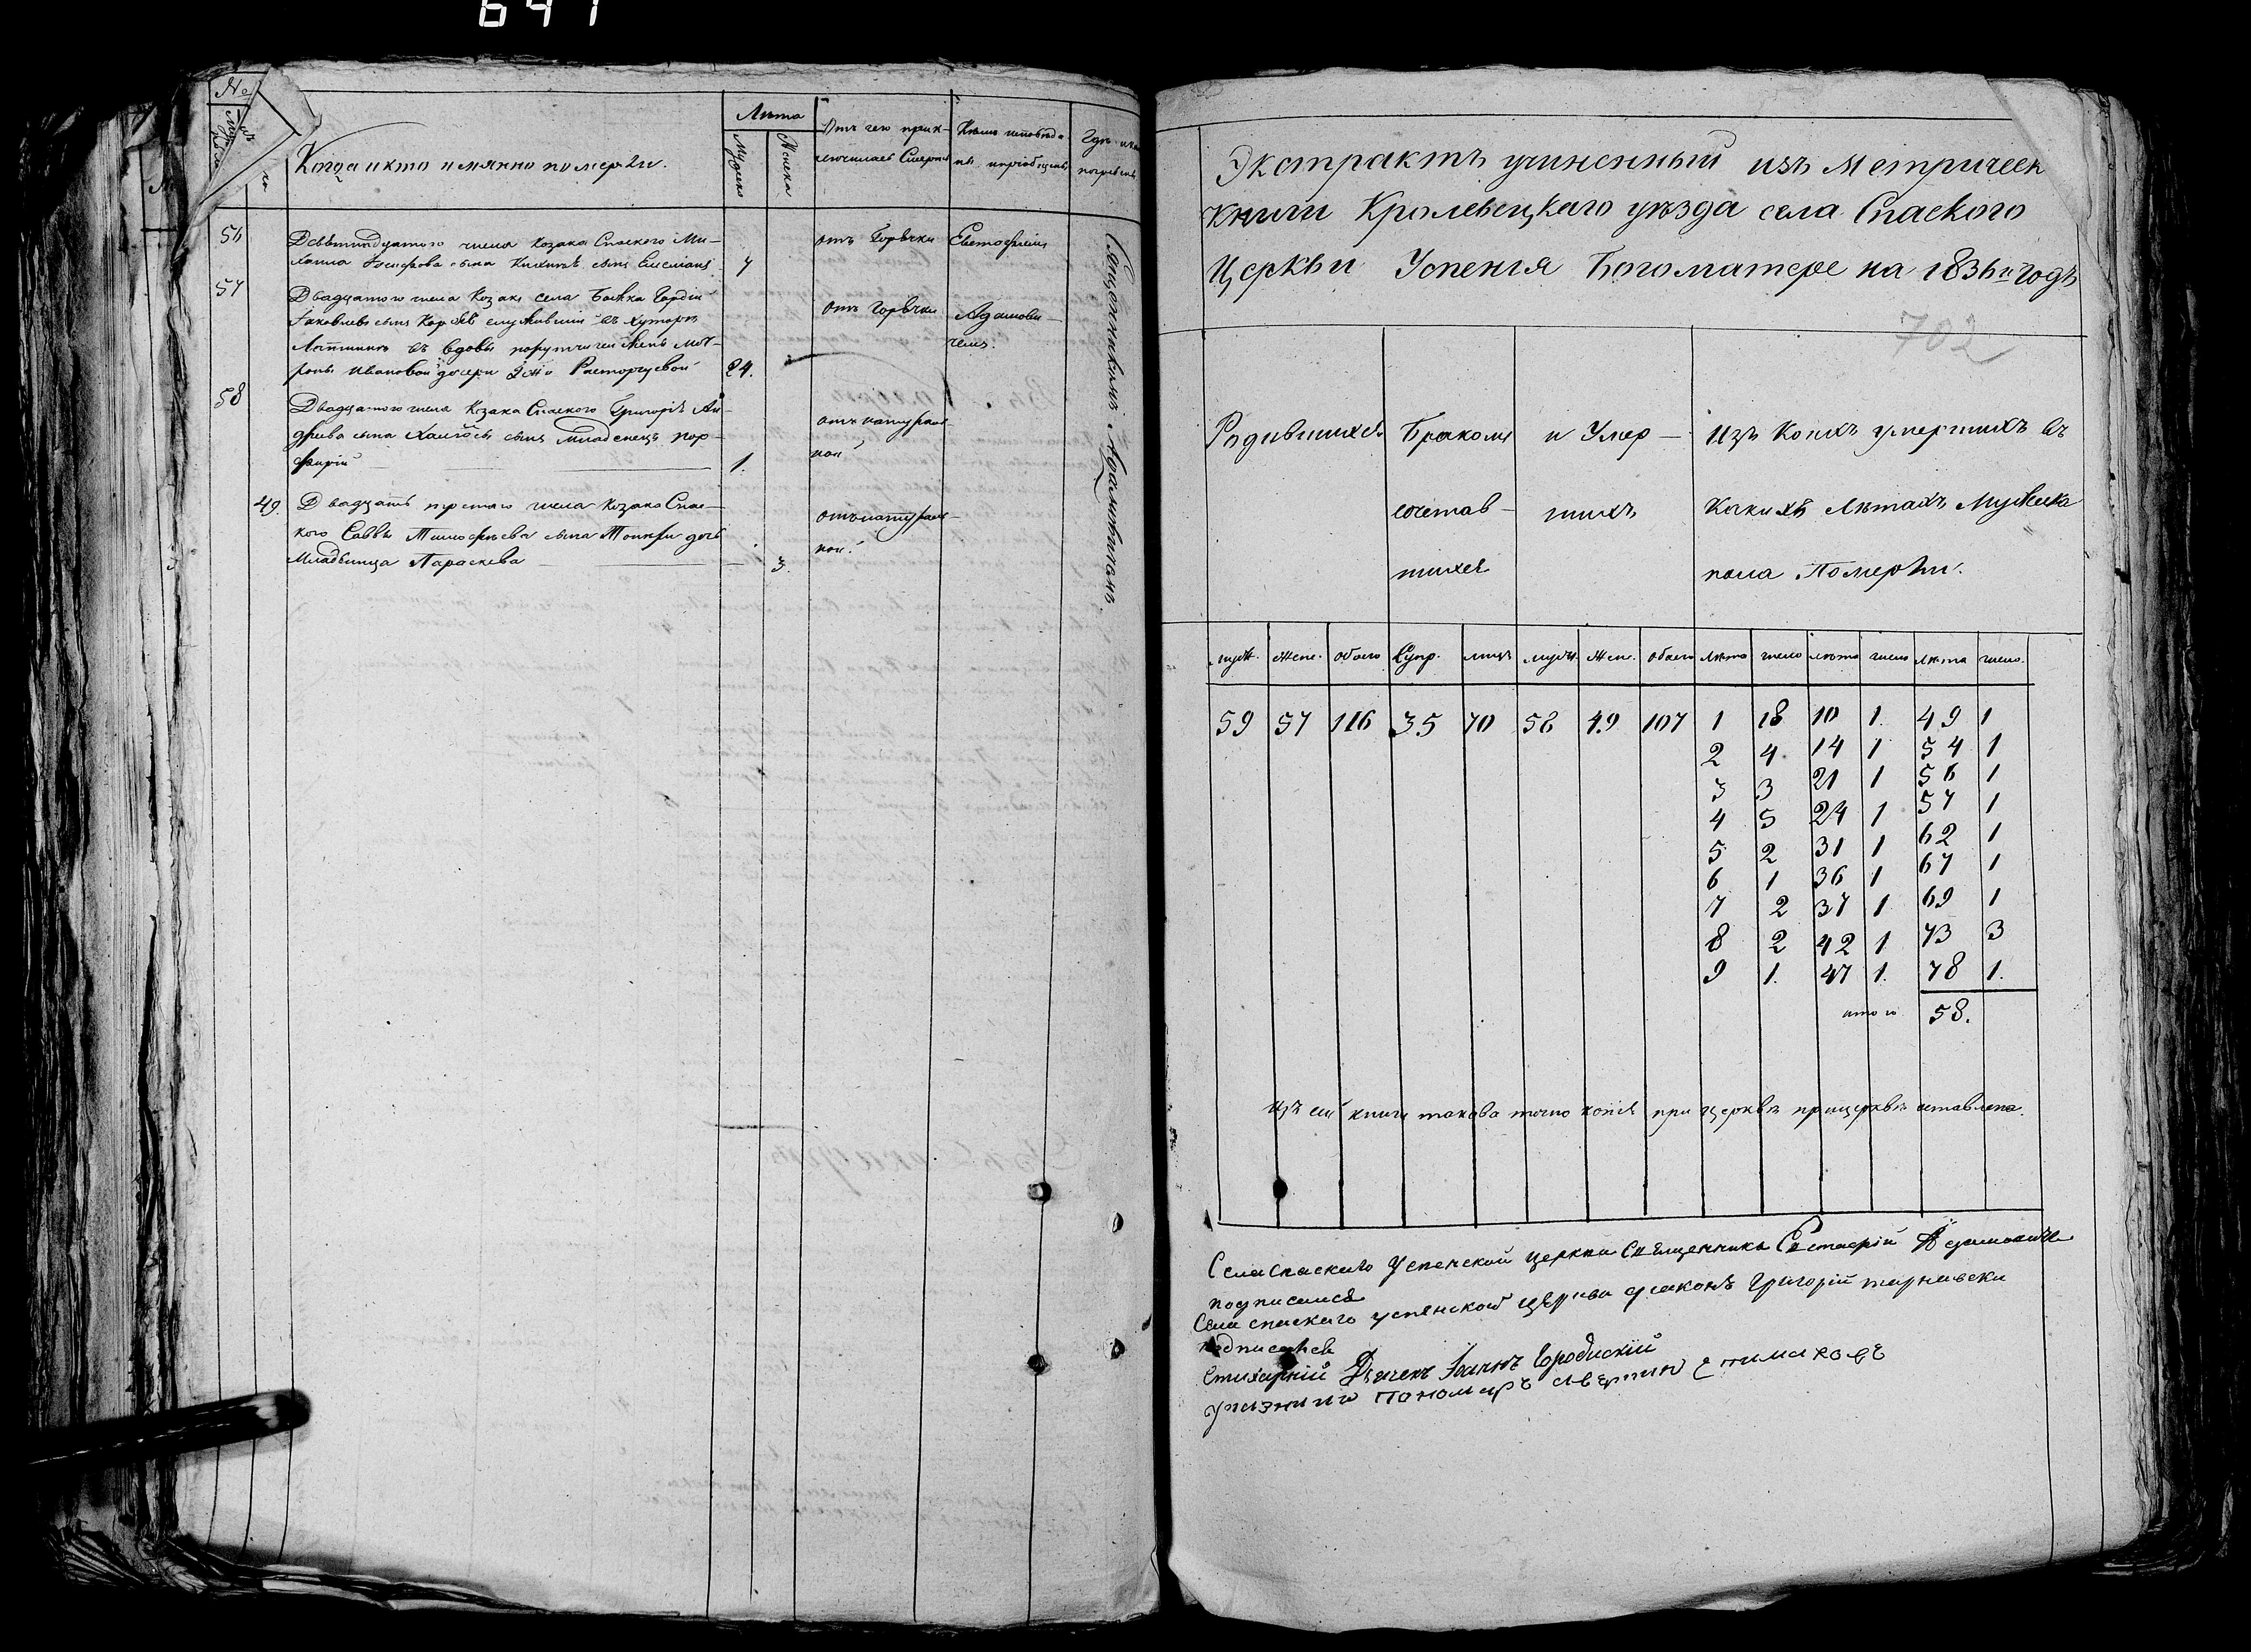 641
№
Когда и кто имянно померли.
Лѣта
Мужеска
Женска
Отъ чего прик-
лючилась Смерть
Кѣмъ исповѣда
ны и пріобщены
Гдѣ и кѣмъ
погребены
56
Девятнадцатого числа козака Спаского Ми-
хаила сына сынъ
7
отъ Горячки
Евстафіемъ
57
Двадцатого числа Козакъ села Гордій
Іаковлевъ сынъ служившій въ хуторѣ
въ вдовы порутчицы Мот-
роны Ивановой дочери Расторгуевой
24.
отъ Горячки
Адамови-
чемъ.
58
Двадцатого числа Козака Спаского Григорія Ан-
дреева сына сынъ Младенецъ Пор-
фирій
1.
отъ натураль-
ной
49.
Двадцать третьяго числа Козака Спас-
кого Саввы Тимофѣева сына дочь
Младѣница Параскева
3.
отъ натураль-
ной.
Священникомъ Адамовичемъ.
Экстрактъ учиненный изъ Метрическ
книги Кролевецкаго уѣзда села Спаского
Церкви Успенія Богоматере на 1836й Годъ
702
Родившихся Бракомъ и Умер- Изъ Коихъ умершихъ въ
сочетав- шихъ Какихъ Лѣтахъ Мужеска
шихся пола Померли.
муж. Жен. обоего Супр. лицъ муж. Жен. обоего Лѣта число лѣта число лѣта число.
59 57 116 35 70 58 49 107 1 18 10 1. 49 1
2 4 14 1 54 1
3 3 21 1 56 1
4 5 24 1 57 1
5 2 31 1 62 1
6 1 36 1 67 1
7 2 37 1 69 1
8 2 42 1 73 3
9 1. 47 1. 78 1.
итого 58.
Изъ сей книги такова точно копія при церквѣ прицерквѣ оставлена.
Села Спаскаго Успенской церкви Священникъ Евстафій Адамовичъ
подписался
Села спаскаго успенской церкви диаконъ Григорій тарнавски
подписался
Стихарній Дьячекъ Іоаннъ Бродискій
указнии Пономаръ